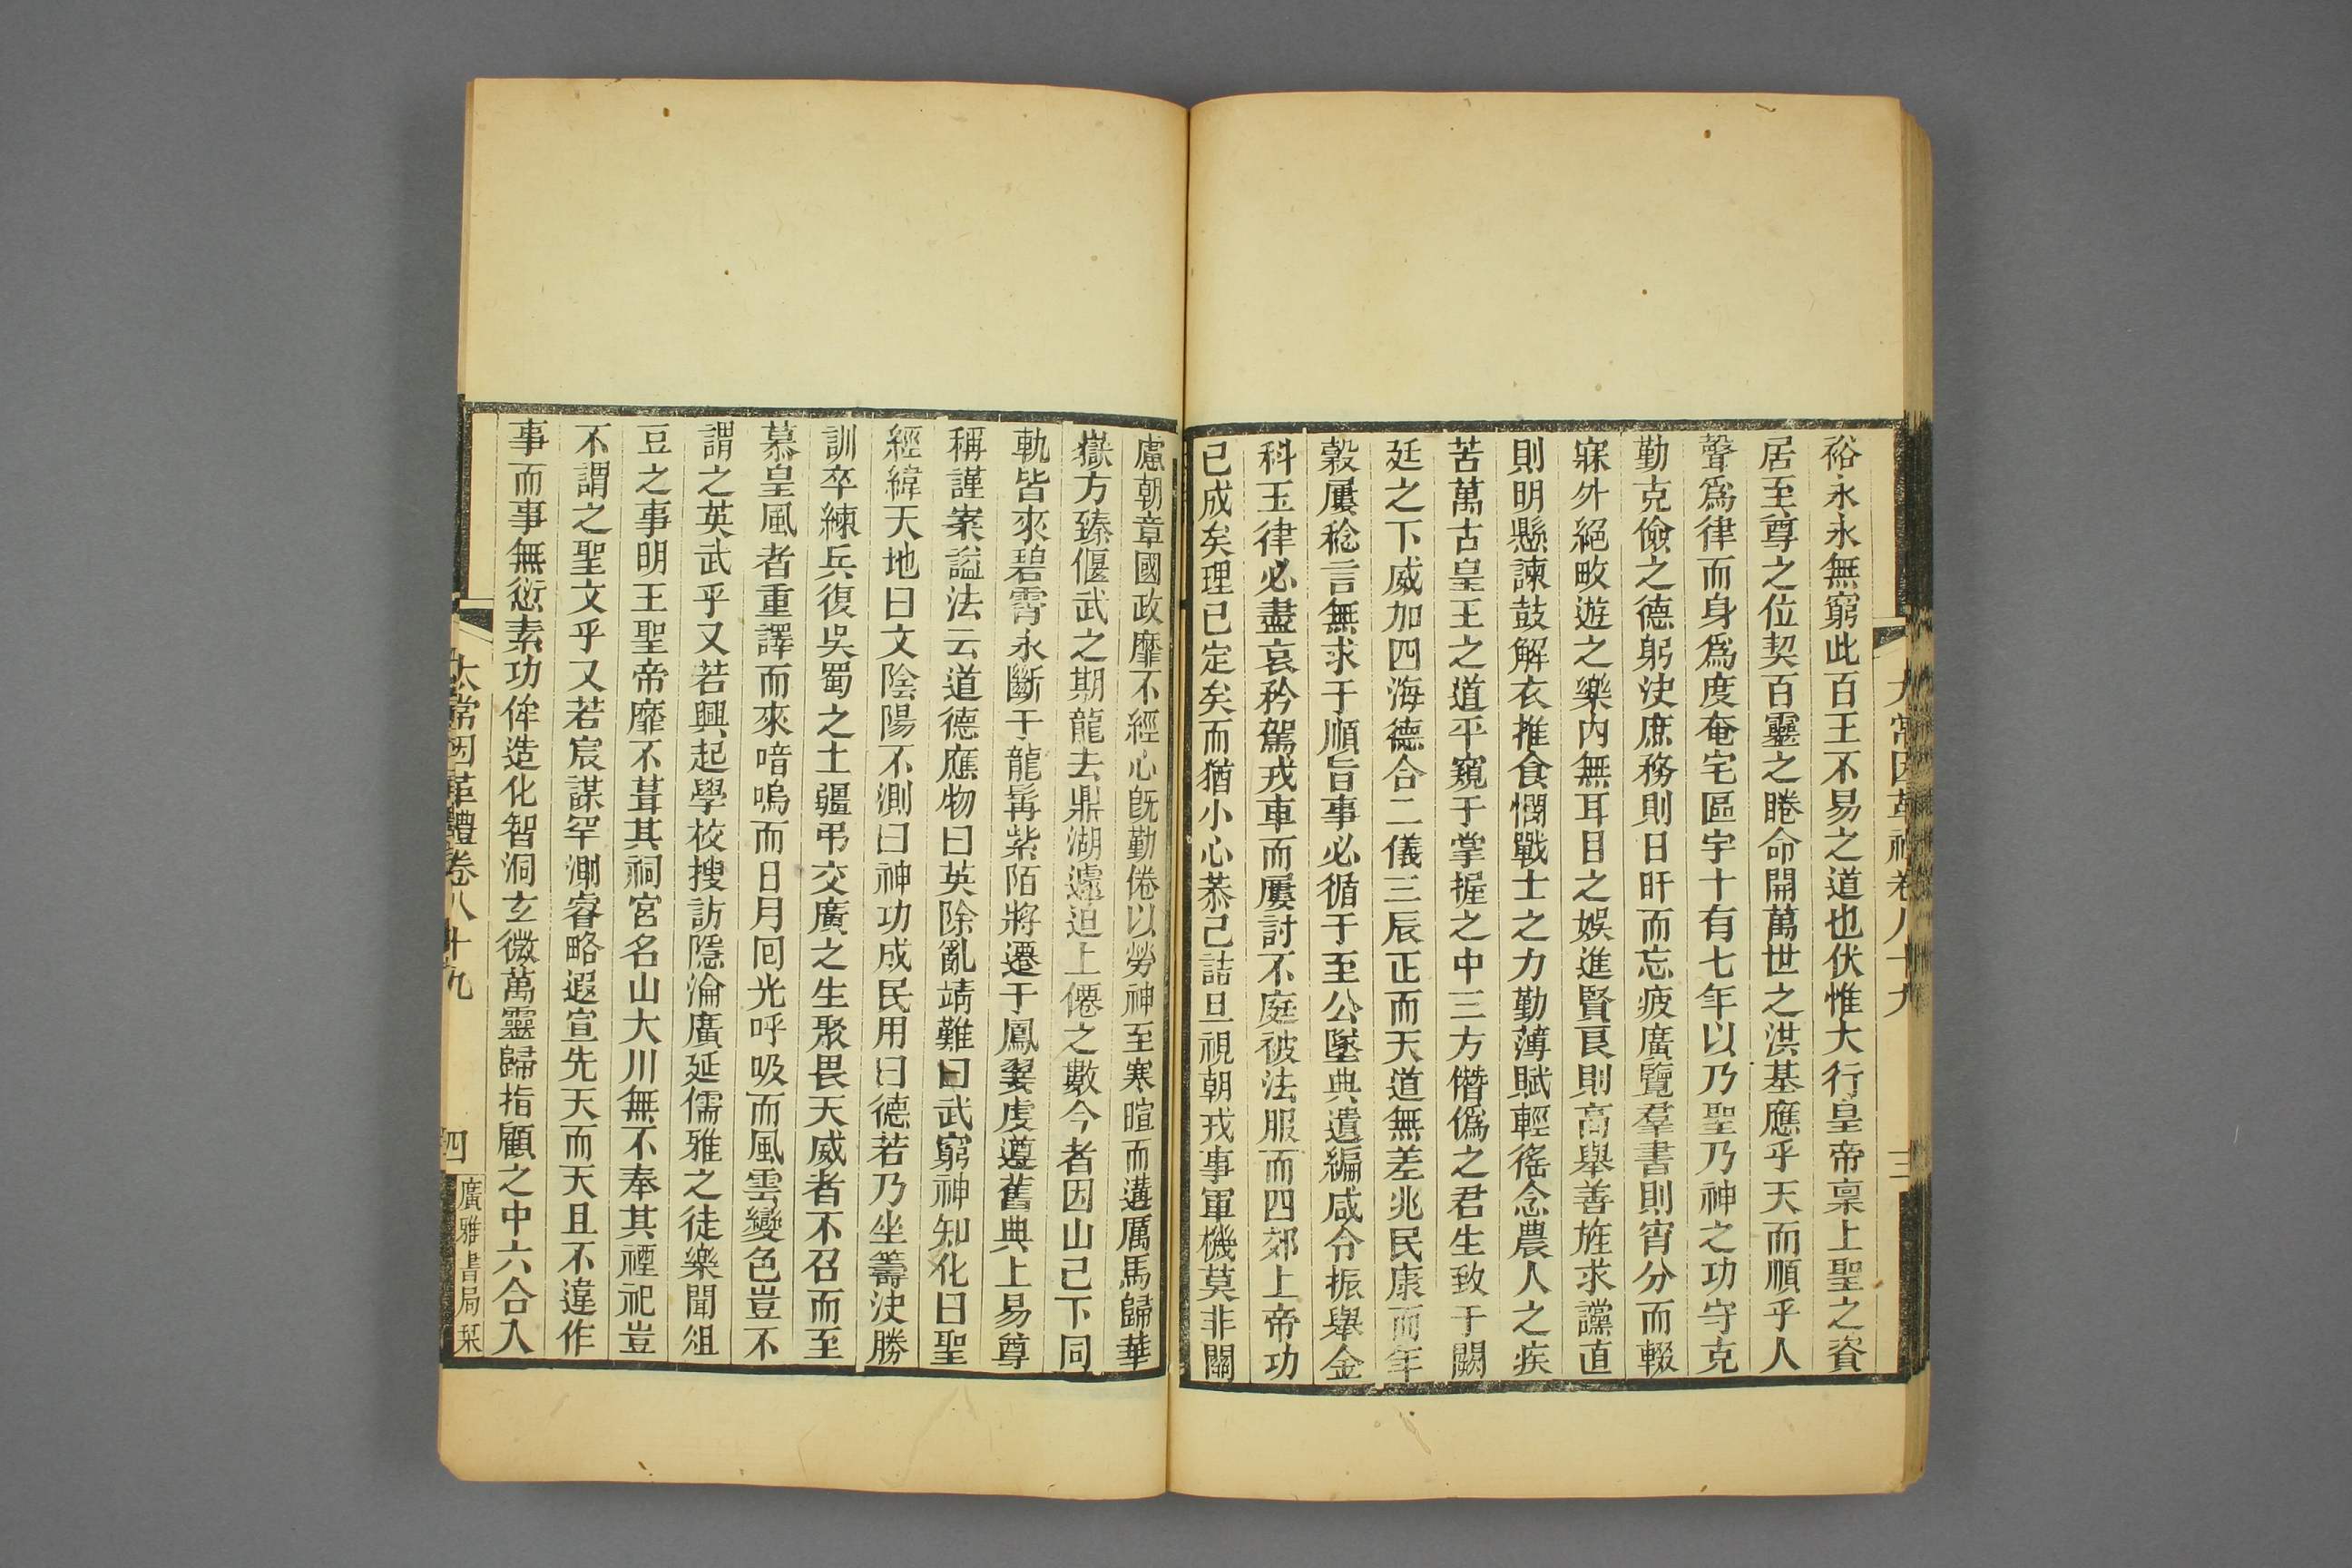 太常因革禮卷八十九
三
裕永永無窮此百王不易之道也伏惟大行皇帝稟上聖之資
居至尊之位契百靈之睠命開萬世之洪基應乎天而順乎人
聲爲律而身爲度奄宅區宇十有七年以乃聖乃神之功守克
勤克儉之德躬決庶務則日旰而忘疲廣覽羣書則宵分而輟
寐外絕畋遊之樂內無耳目之娛進賢良則高舉善旌求讜直
則明懸諫鼓解衣推食憫戰士之力勤薄賦輕徭念農人之疾
苦萬古皇王之道平窺于掌握之中三方僭僞之君生致于闕
廷之下威加四海德合二儀三辰正而天道無差兆民康而年
穀屢稔言無求于順旨事必循于至公墜典遺編咸令振舉金
科玉律必盡哀矜駕戎車而屢討不庭被法服而四郊上帝功
已成矣理已定矣而猶小心恭己詰旦視朝戎事軍機莫非關
慮朝章國政靡不經心旣勤倦以勞神至寒暄而遘厲馬歸華
嶽方臻偃武之期龍去鼎湖遽迫上僊之數今者因山已下同
軌皆來碧霄永斷于龍髯紫陌將遷于鳳翣虔遵舊典上易尊
稱謹案謚法云道德應物曰英除亂靖難曰武窮神知化曰聖
經緯天地曰文陰陽不測曰神功成民用曰德若乃坐籌決勝
訓卒練兵復吳蜀之土疆弔交廣之生聚畏天威者不召而至
慕皇風者重譯而來喑嗚而日月回光呼吸而風雲變色豈不
謂之英武乎又若興起學校搜訪隱淪廣延儒雅之徒樂聞俎
豆之事明王聖帝靡不葺其祠宮名山大川無不奉其禋祀豈
不謂之聖文乎又若宸謀罕測睿略遐宣先天而天且不違作
事而事無愆素功侔造化智洞玄微萬靈歸指顧之中六合入
太常因革禮卷八十九
四
廣雅書局栞